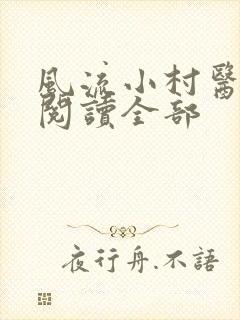 風流小村醫
閱讀全部
夜行舟.不語